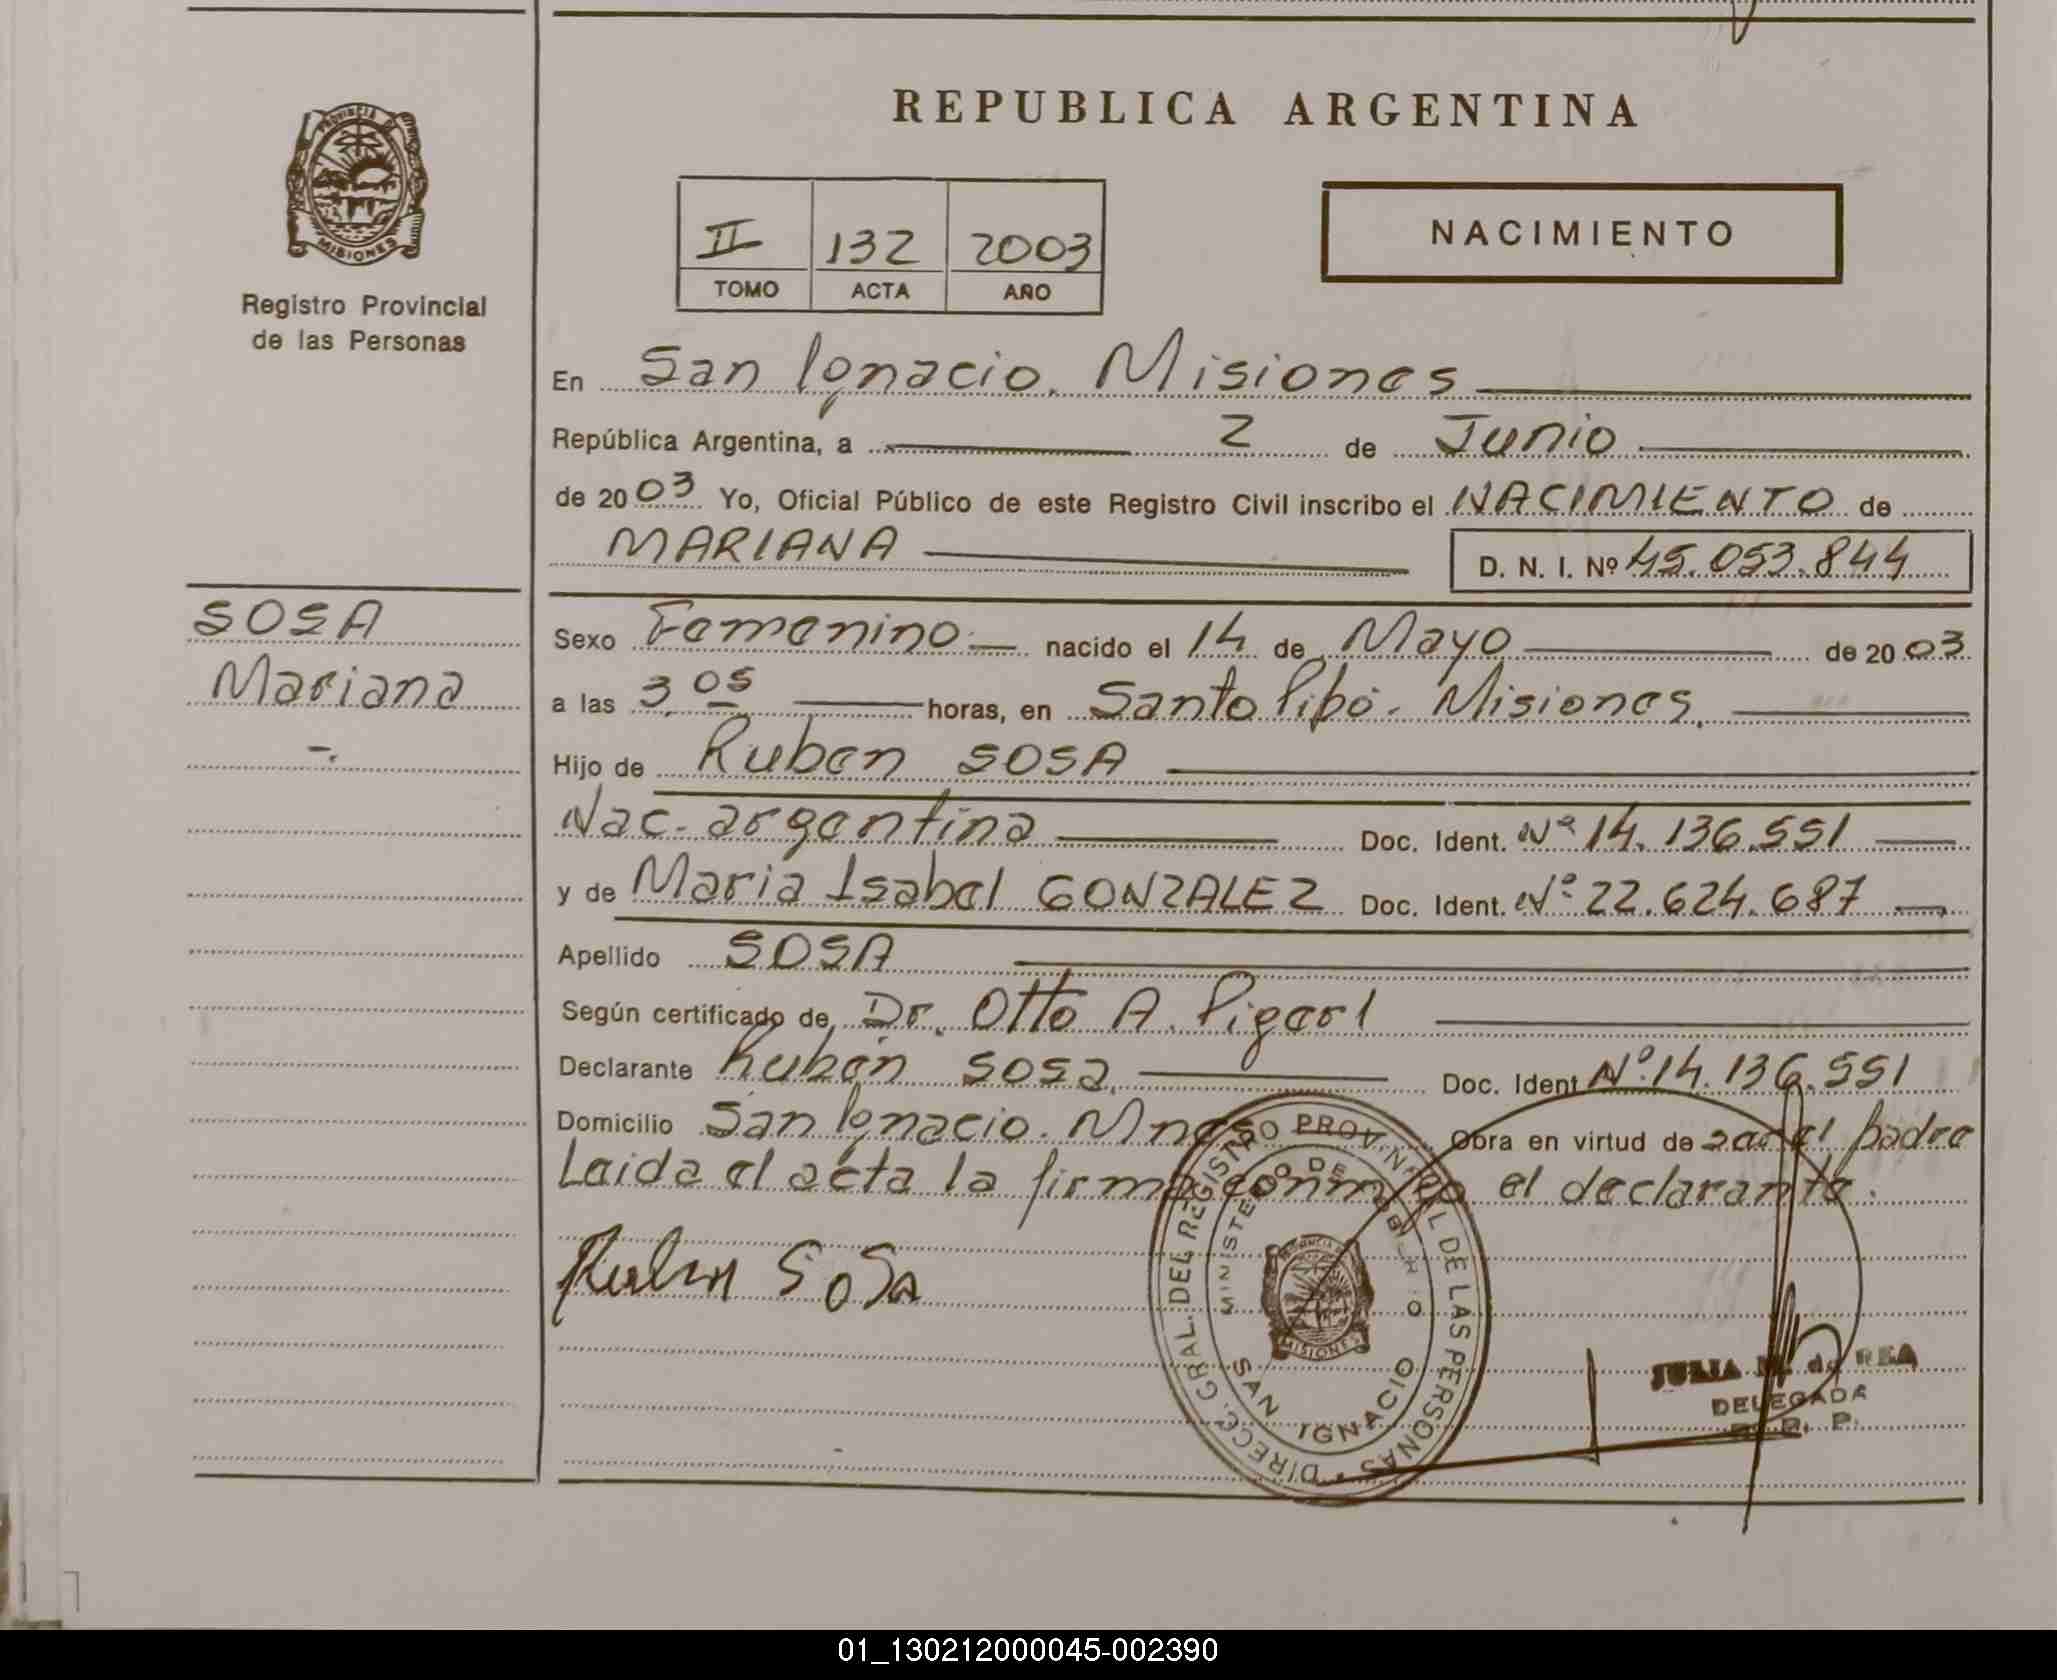 REPUBLICA ARGENTINA
PROVINCIA DE
MISIONES
Registro Provincial
de las Personas
II 132 2003
TOMO ACTA AÑO
NACIMIENTO
En San Ignacio. Misiones
República Argentina, a 2 de Junio
de 2003 Yo, Oficial Público de este Registro Civil inscribo el NACIMIENTO de
MARIANA D. N. I. Nº 45.053.844
SOSA
Mariana
Sexo Femenino nacido el 14 de Mayo de 2003
a las 3,05 horas, en Santo Pipó. Misiones.
Hijo de Ruben SOSA
Nac. argentina Doc. Ident. Nº 14.136.551
y de Maria Isabel GONZALEZ Doc. Ident. Nº 22.624.687
Apellido SOSA
Según certificado de Dr. Otto A. Pigerl
Declarante Rubén Sosa, Doc. Ident Nº.14.136.551
Domicilio San Ignacio. Mnes Obra en virtud de el padre
Leida el acta la firma conmigo el declarante.
Ruben SoSa
DIRECC. GRAL. DEL REGISTRO PROVINCIAL DE LAS PERSONAS
MINISTERIO DE GOBIERNO
MISIONES
SAN IGNACIO
JULIA de REA
DELEGADA
01_130212000045-002390